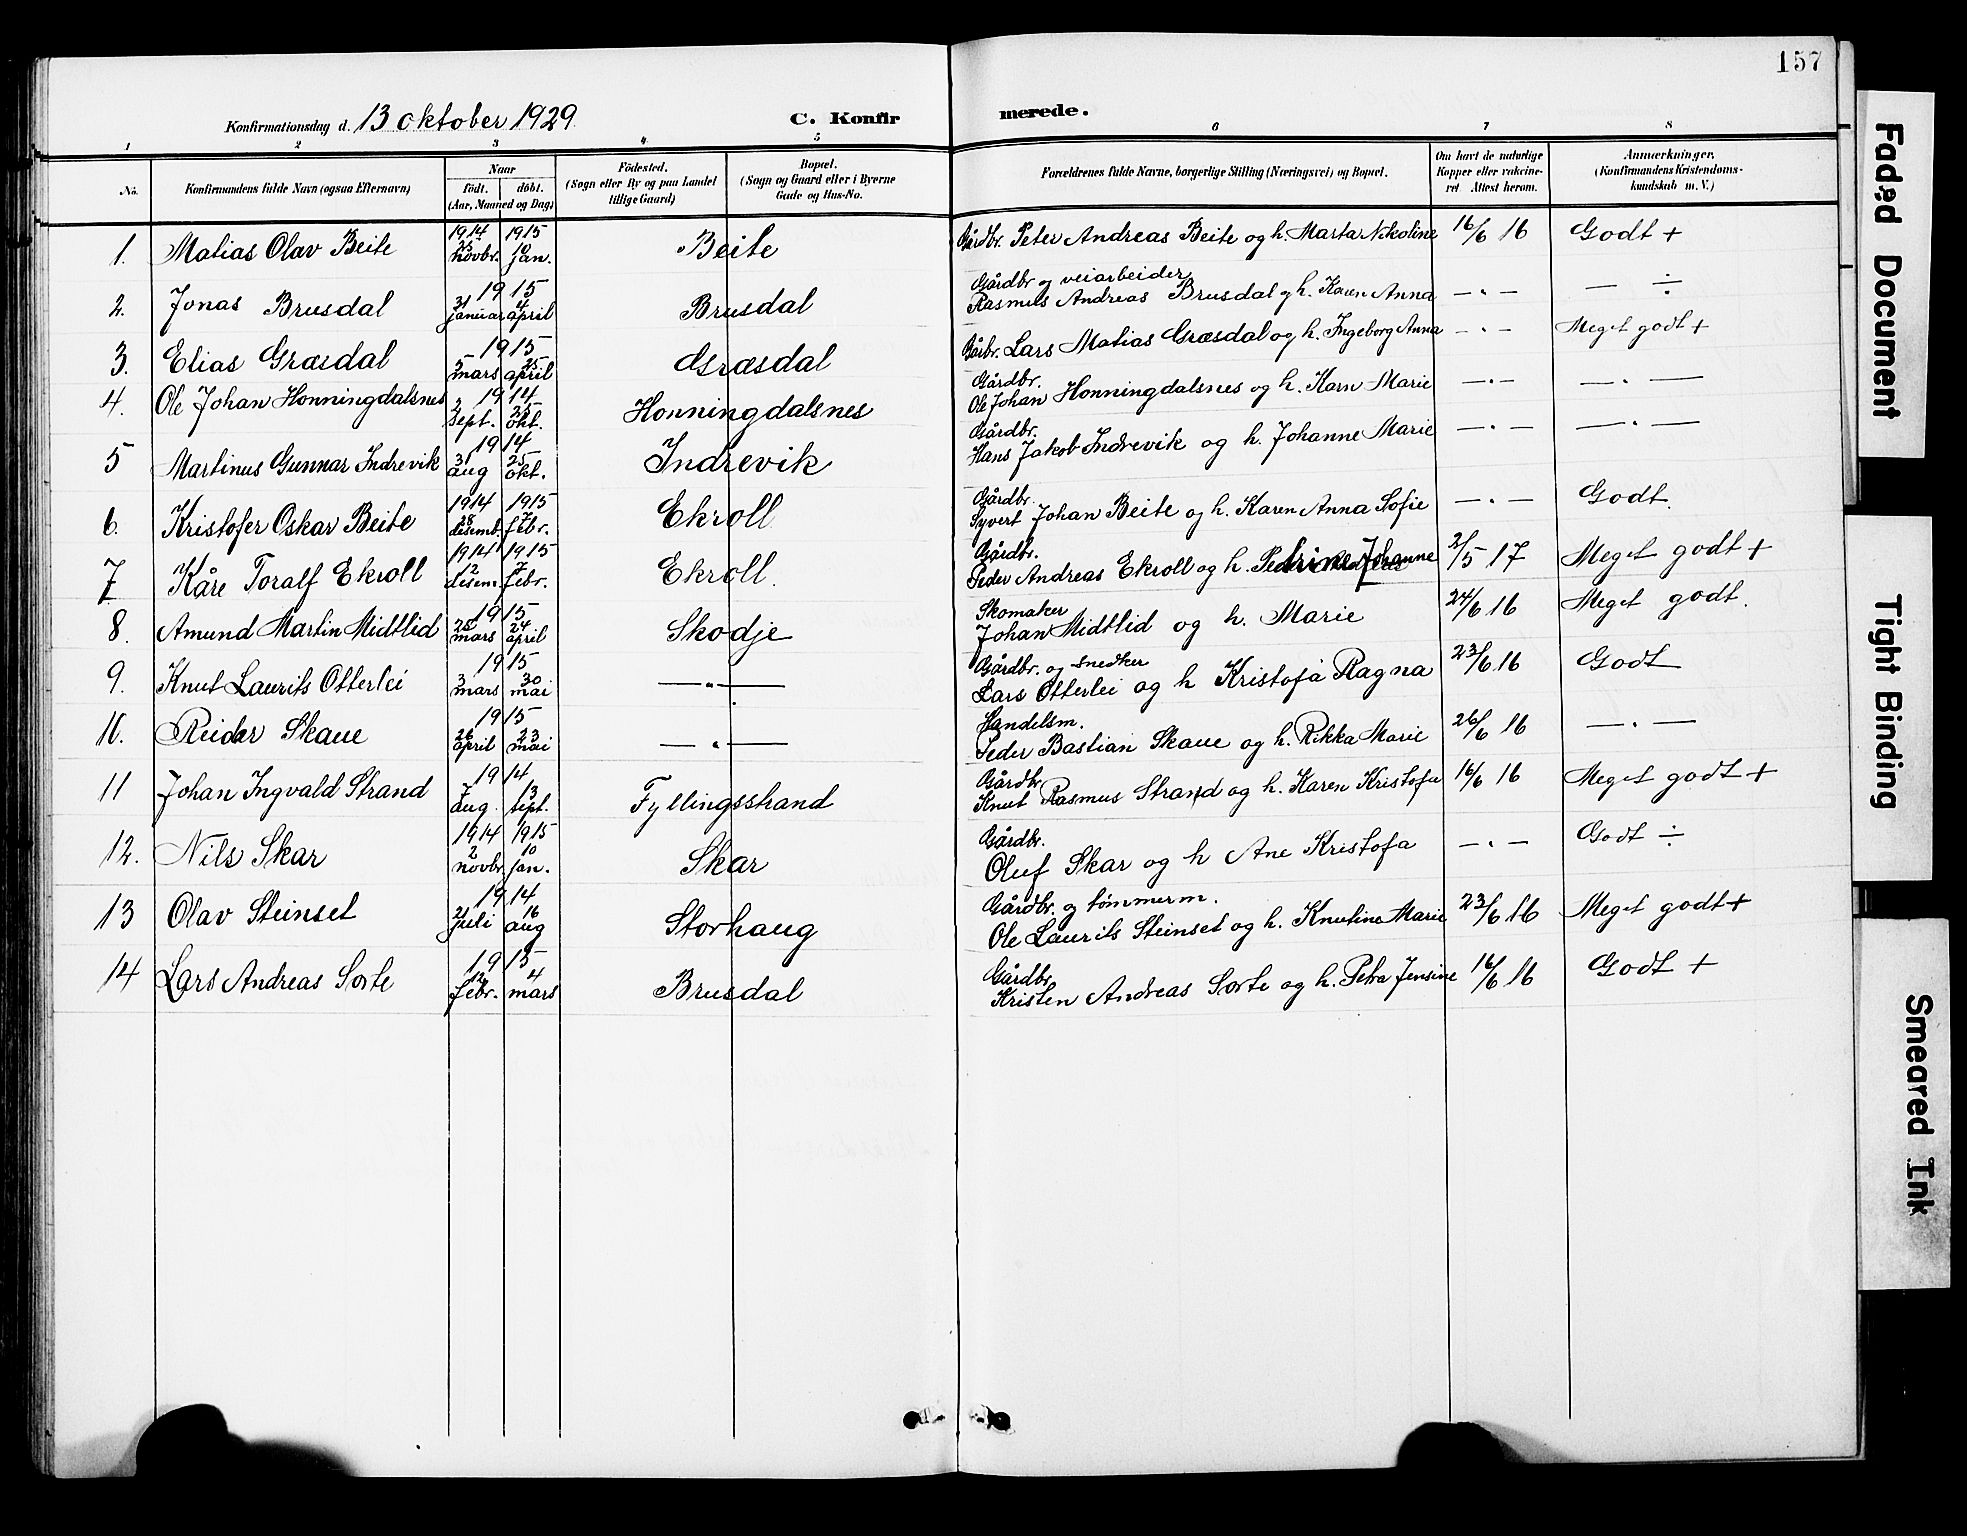 157
Konfirmationsdag d. 13 oktober 1929
C. Konfirmerede.
1 2 3 4 5 6 7 8
No. Konfirmandens fulde Navn (ogsaa Efternavn) Naar født. døbt. (Aar, Maaned og Dag) Fødested. (Sogn eller By og paa Landet tillige Gaard) Bopæl. (Sogn og Gaard eller i Byerne Gade og Hus-No. Forældrenes fulde Navne, borgerlige Stilling (Næringsvei) og Bopæl. Om havt de naturlige Kopper eller vakcineret. Attest herom. Anmærkninger. (Konfirmandens Kristendomskundskab m. V.)
1. Matias Olav Beite 1914 25 novbr. 1915 10 jan. Beite Gårdbr. Peter Andreas Beite og h. Marta Nikoline 16/6 16 Godt +
2. Jonas Brusdal 1915 31 januar 4 april Brusdal Gårdbr og veiarbeider Rasmus Andreas Brusdal og h. Karen Anna — " — — ÷
3. Elias Græsdal 1915 5 mars 25 april Græsdal Gårbr. Lars Matias Græsdal og h. Ingeborg Anna — " — Meget godt +
4. Ole Johan Honningdalsnes 1914 2 Sept. 25 okt. Honningdalsnes Gårdbr. Ole Johan Honningdalsnes og h. Karn Marie — " — — " —
5 Martinus Gunnar Indrevik 1914 31 aug 25 okt. Indrevik Gårdbr. Hans Jakob Indrevik og h. Johanne Marie — " — — " —
6. Kristofer Oskar Beite 1914 28 desemb. 1915 7 febr. Ekroll Gårdbr. Syvert Johan Beite og h. Karen Anna Sofie — " — Godt.
7. Kåre Toralf Ekroll 1914 12 desem. 1915 7 febr. Ekroll. Gårdbr. Peder Andreas Ekroll og h. Pedrine Johanne 2/5 17 Meget godt +
8. Amund Martin Midtlid 1915 25 mars 24 april Skodje Skomaker Johan Midtlid og h. Marie 24/6 16 Meget godt.
9. Knut Laurits Otterlei 1915 3 mars 30 mai — " — Gårdbr. og snedker Lars Otterlei og h Kristofa Ragna 23/6 16 Godt
10. Reidar Skaue 1915 26 april 23 mai — " — Handelsm. Peder Bastian Skaue og h. Rikka Marie 26/6 16 — " —
11 Johan Ingvald Strand 1914 7 aug. 13 sept. Fyllingsstrand Gårdbr. Knut Rasmus Strand og h. Karen Kristofa 16/6 16 Meget godt +
12. Nils Skar 1914 2 novbr 1915 10 jan. Skar Gårdbr. Oluf Skar og h Ane Kristofa — " — Godt ÷
13 Olav Steinset 1914 21 juli 16 aug Storhaug Gårdbr. og tømmerm. Ole Laurits Steinset og h. Knutine Marie 23/6 16 Meget godt +
14 Lars Andreas Sorte 1915 febr. 4 mars Brusdal Gårdbr. Kristen Andreas Sorte og h. Petra Jensine 16/6 16 Godt +
Faded Document
Tight Binding
Smeared Ink